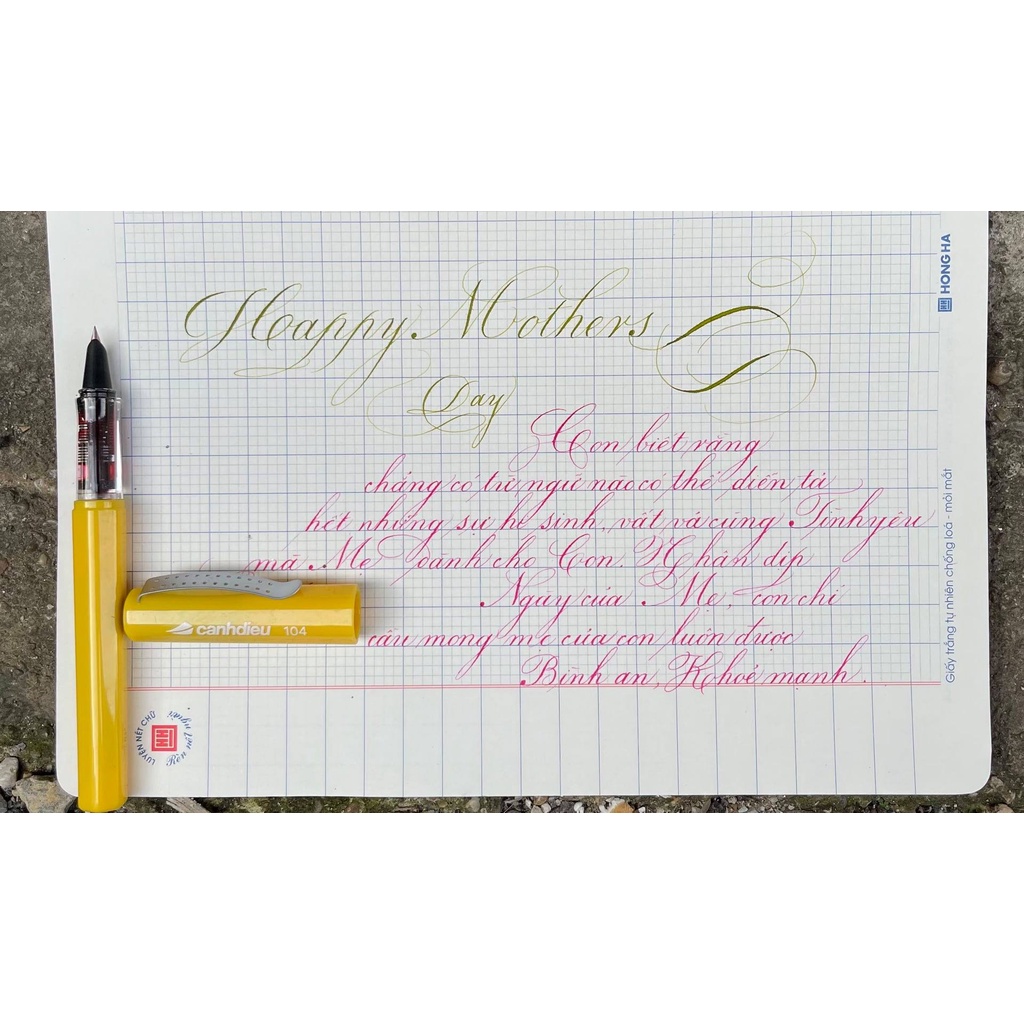 Happy Mothers
Day
Con biết rằng
chẳng có từ ngữ nào có thể diễn tả
hết những sự hi sinh, vất vả cùng Tình yêu
mà Mẹ dành cho Con. Nhân dịp
Ngày của Mẹ, con chỉ
cầu mong mẹ của con luôn được
Bình an, Khoẻ mạnh.
canhdieu 104
HONG HA
Giấy trắng tự nhiên chống loá - mỏi mắt
LUYỆN NÉT CHỮ
Rèn nên người